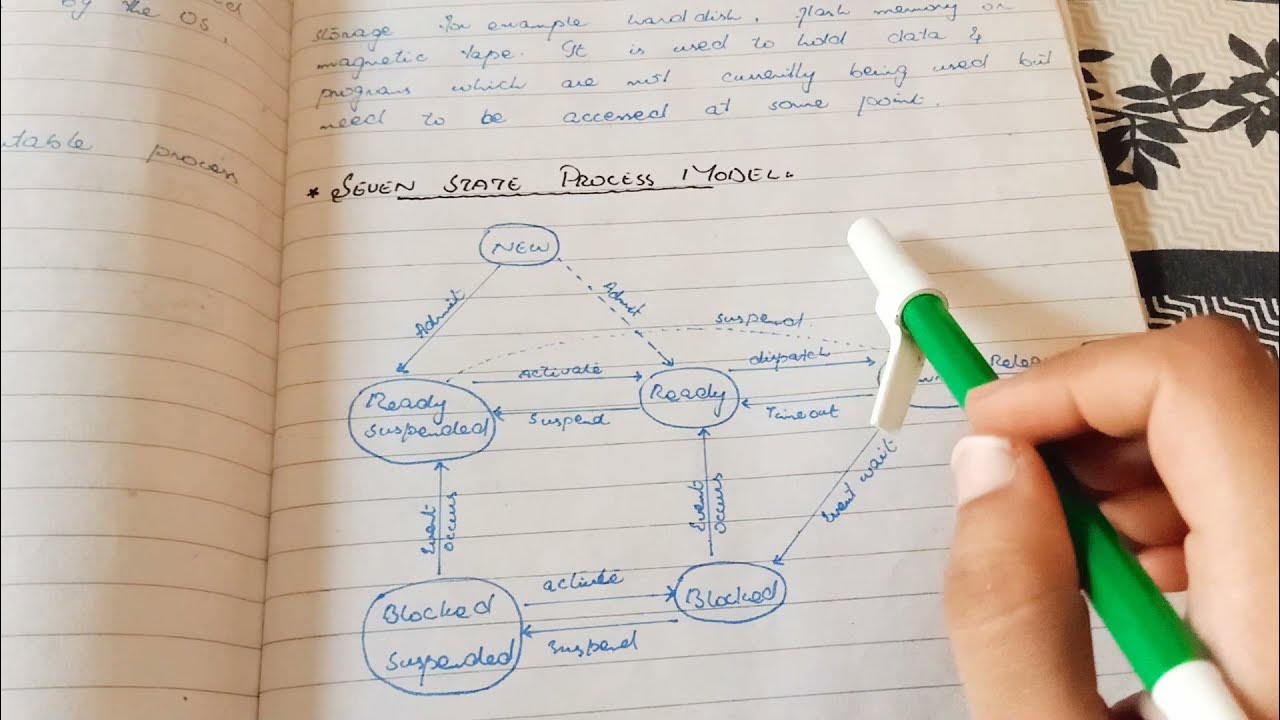 by the OS,
table process
storage for example harddish, flash memory or
magnetic tape. It is used to hold data &
program which are not currently being used but
need to be accessed at some point.
* SEVEN STATE PROCESS MODEL.
NEW
Admit
Admit
suspend
Activate
dispatch
Release
Ready
suspended
Ready
Suspend
Timeout
Event
occurs
Event
occurs
Event wait
Blocked
suspended
activate
Blocked
suspend